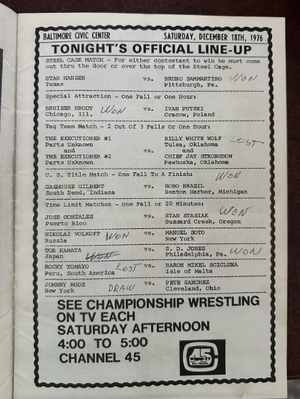 BALTIMORE CIVIC CENTER SATURDAY, DECEMBER 18TH, 1976
TONIGHT'S OFFICIAL LINE-UP
STEEL CAGE MATCH - For either contestant to win he must come
out thru the door or over the top of the Steel Cage.
STAN HANSEN vs. BRUNO SAMMARTINO WON
Texas Pittsburgh, Pa.
Special Attraction - One Fall or One Hour:
BRUISER BRODY WON vs. IVAN PUTSKI
Chicago, Ill. Cracow, Poland
Tag Team Match - 2 Out Of 3 Falls or One Hour:
THE EXECUTIONER #1 BILLY WHITE WOLF LOST
Parts Unknown vs. Tulsa, Oklahoma
and and
THE EXECUTIONER #2 CHIEF JAY STRONGBOW
Parts Unknown Pawhuska, Oklahoma
U. S. Title Match - One Fall To A Finish: WON
GASHOUSE GILBERT vs. BOBO BRAZIL
South Bend, Indiana Benton Harbor, Michigan
Time Limit Matches - One Fall or 20 Minutes:
JOSE GONZALES vs. STAN STASIAK WON
Puerto Rico Buzzard Creek, Oregon
NIKOLAI VOLKOFF WON vs. MANUEL SOTO
Russia New York
TOR KAMATA vs. S. D. JONES WON
Japan WON Philadelphia, Pa.
ROCKY TOMAYO LOST vs. BARON MIKEL SCICLUNA
Peru, South America Isle of Malta
JOHNNY RODZ DRAW vs. PETE SANCHEZ
New York Cleveland, Ohio
SEE CHAMPIONSHIP WRESTLING
ON TV EACH
SATURDAY AFTERNOON
4:00 TO 5:00
CHANNEL 45
45